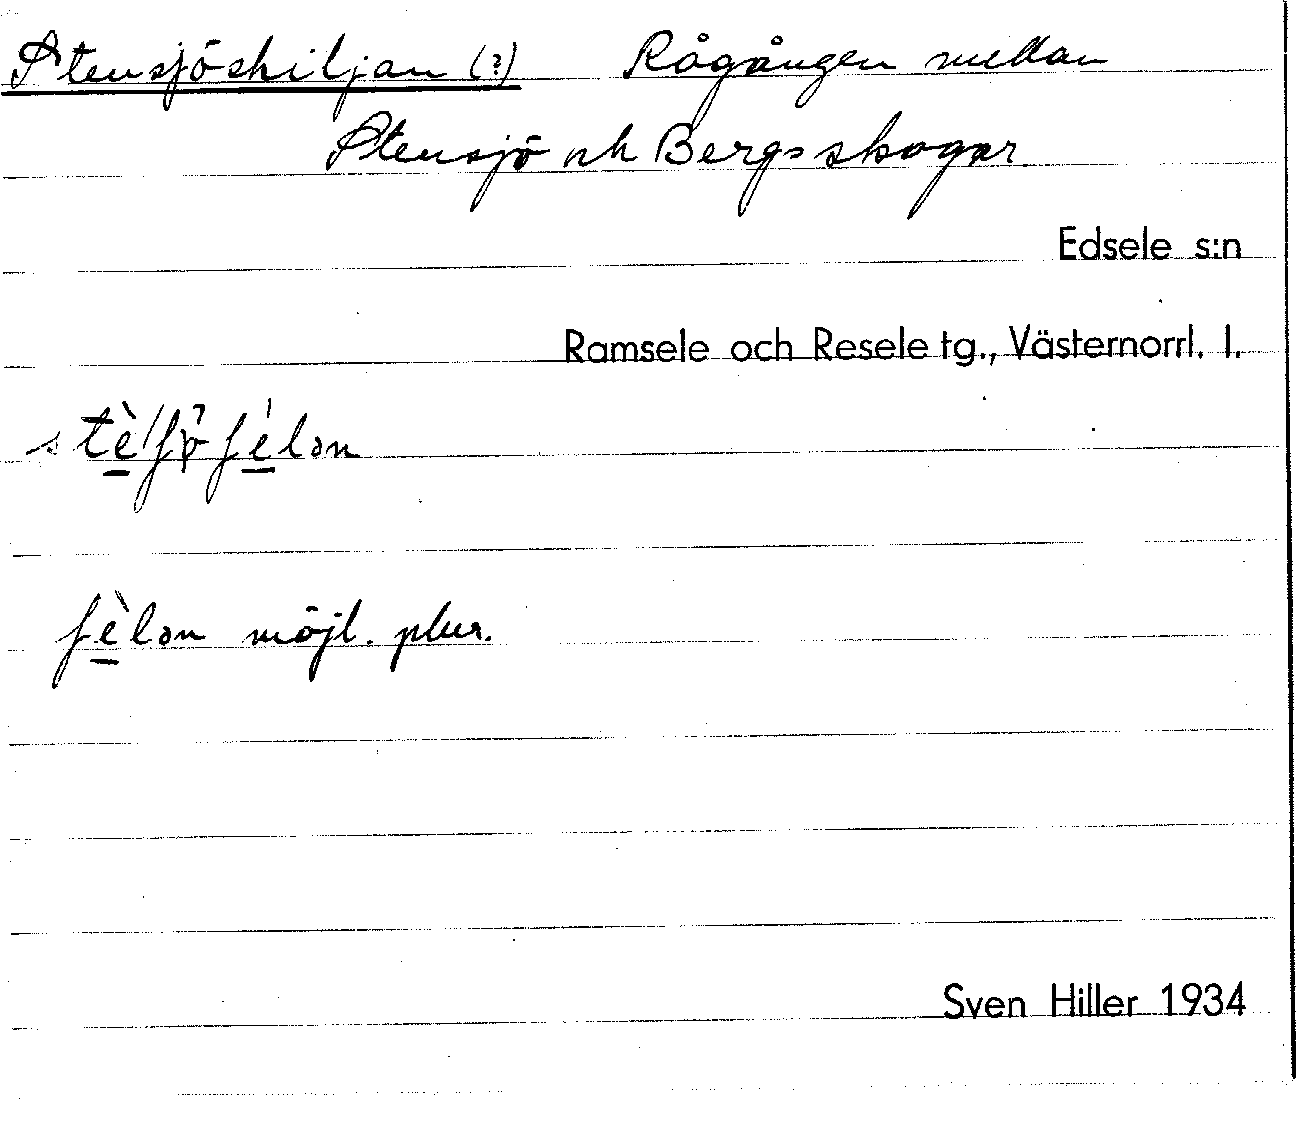 Stensjöskiljan (?) Rågången mellan
Stensjö och Bergs skogar.
Edsele s:n
Ramsele och Resele tg., Västernorrl. l.
fèlən möjl. plur.
Sven Hiller 1934